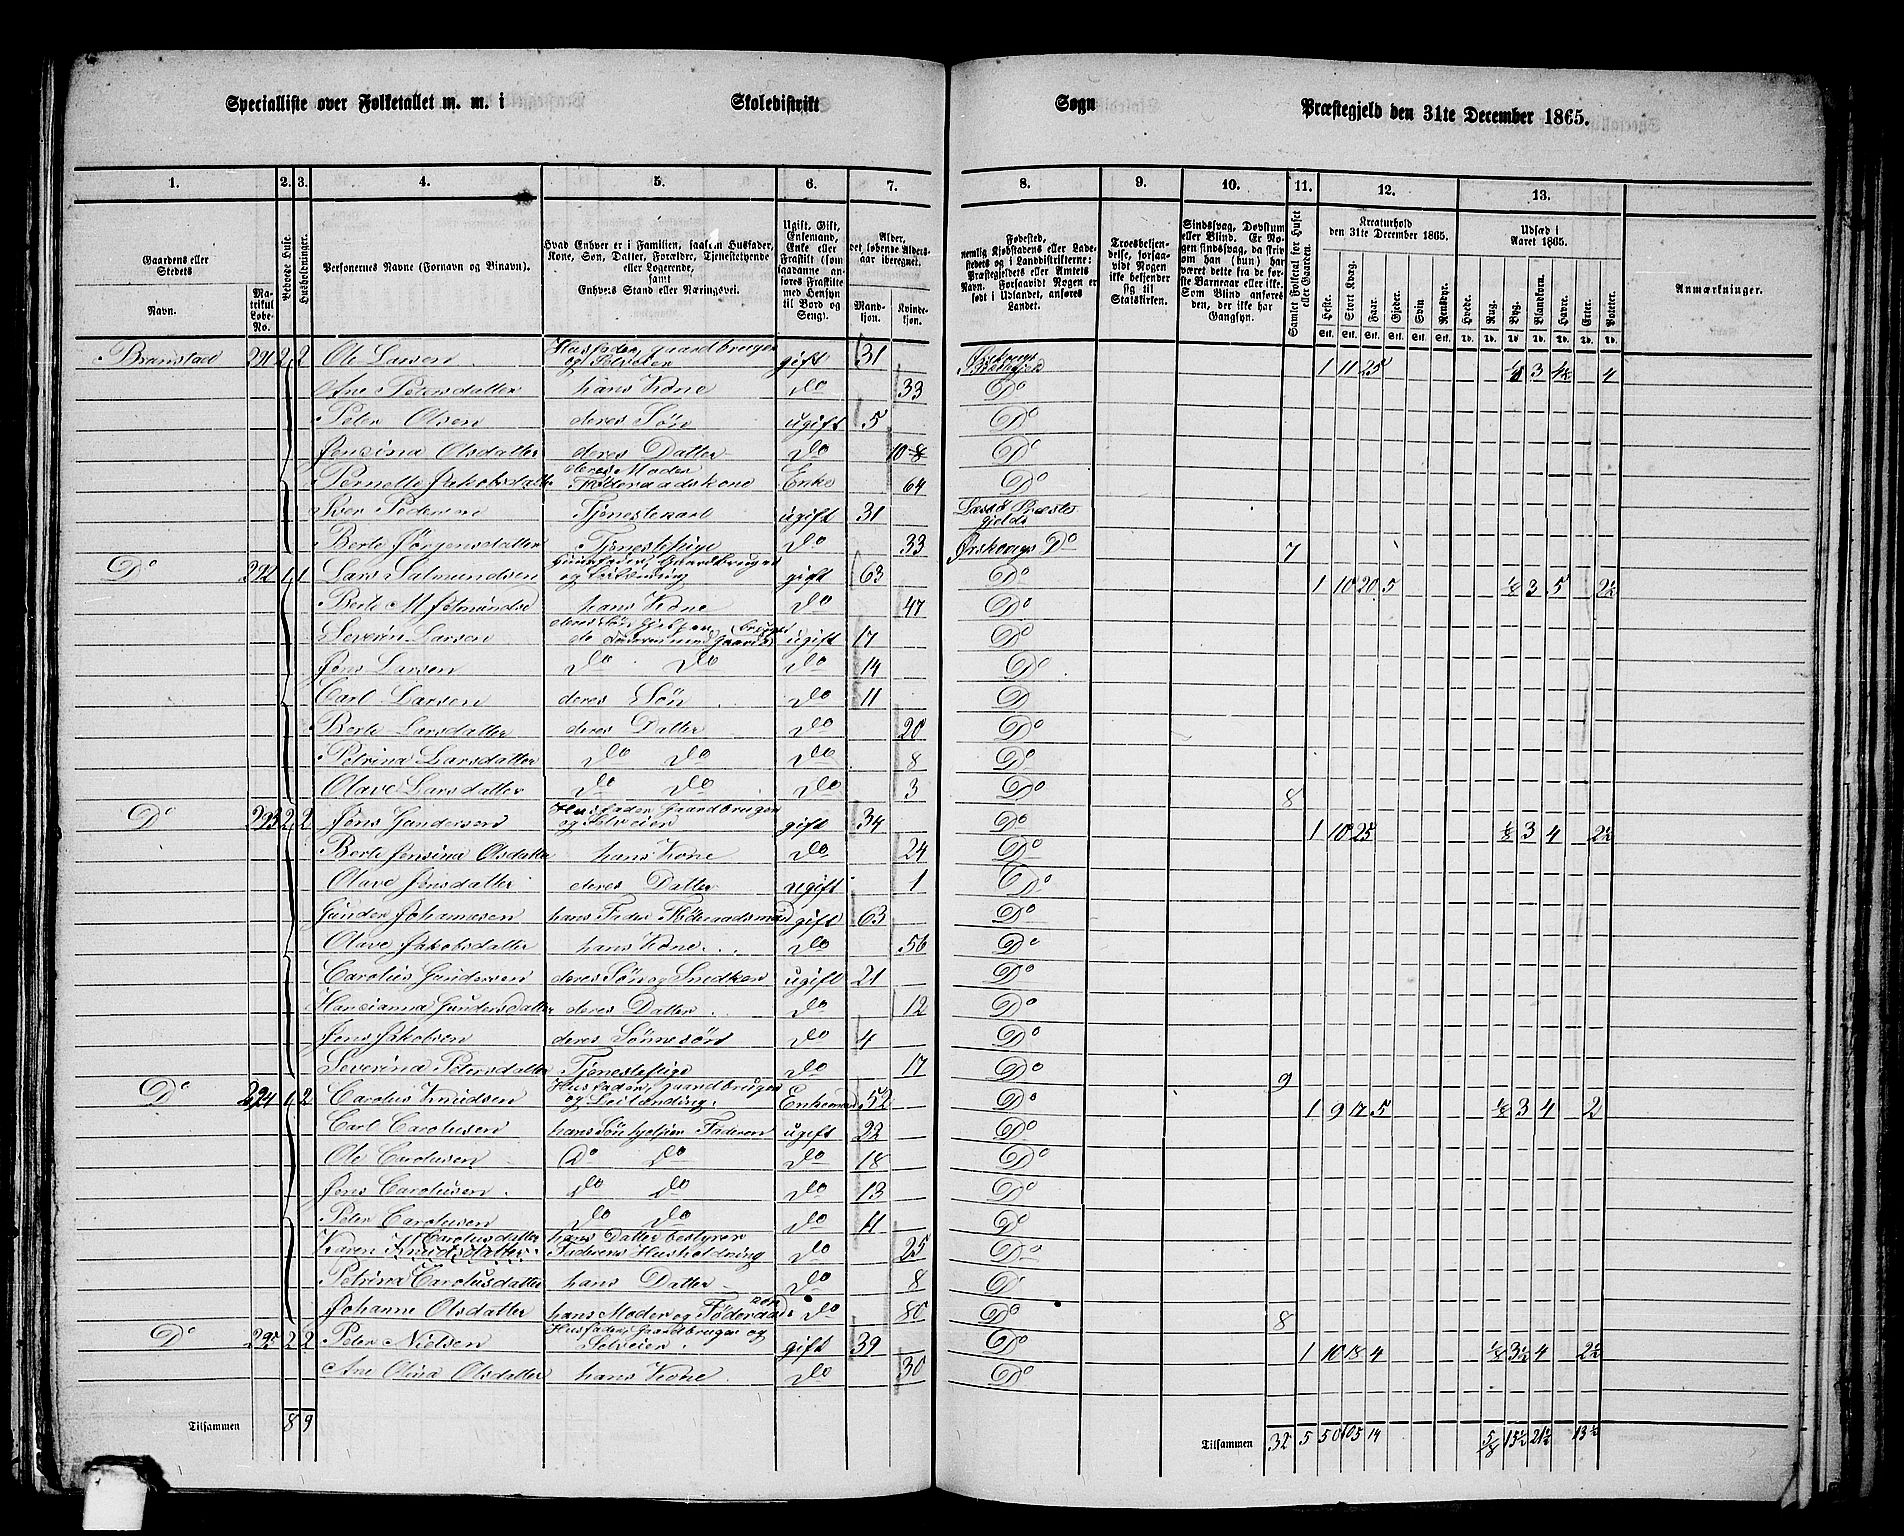 Specialliste over Folketallet m. m. i Skoledistrikt Sogn Præstegjeld den 31te December 1865.
1. 2. 3. 4. 5. 6. 7. 8. 9. 10. 11. 12. 13.
Gaardens eller Stedets
Navn.
Matrikul Løbe-No.
Beboede Huse.
Husholdninger.
Personernes Navne (Fornavn og Binavn).
Hvad Enhver er i Familien, saasom Husfader, Kone, Søn, Datter, Forældre, Tjenestetyende eller Logerende, samt Enhvers Stand eller Næringsvei.
Ugift, Gift, Enkemand, Enke eller Fraskilt (som saadanne anføres Fraskilte med Hensyn til Bord og Seng).
Alder, det løbende Aldersaar iberegnet.
Mandkjøn. Kvindekjøn.
Fødested, nemlig Kjøbstadens eller Ladestedets og i Landdistrikterne: Præstegjeldets eller Amtets Navn. Forsaavidt Nogen er født i Udlandet, anføres Landet.
Troesbekjendelse, forsaavidt Nogen ikke bekjender sig til Statskirken.
Sindssvag, Døvstum eller Blind. Er Nogen sindssvag, da skrives om han (hun) har været dette fra de første Barneaar eller ikke. Som Blind anføres den, der ikke har Gangsyn.
Samlet Folketal for Huset eller Gaarden.
Kreaturhold den 31te December 1865.
Heste. Stort Kvæg. Faar. Gjeder. Svin. Rensdyr.
Udsæd i Aaret 1865.
Hvede. Rug. Byg. Blandkorn. Havre. Erter. Poteter.
Anmærkninger.
Branstad 291 2 2 Ole Larsen Husfader, Gaardbruger og Selveier gift 31 Ørskougs Præstegjeld 1 11 25 3 4
Ane Petersdatter hans Kone Do 33 Do
Peter Olsen deres Søn ugift 5 Do
Jensina Olsdatter deres Datter Do 10 Do
Pernelle Jakobsdatter deres Moder Føderaadskone Enke 64 Do
Iver Pedersen Tjenestekarl ugift 31 Præstegjelds
Berte Jørgensdatter Tjenestepige Do 33 Ørskougs Do 7
Do 292 1 1 Lars Salmundsen Husfader, Gaardbruger og Leilænding gift 63 Do 1 10 20 5 1/8 3 5 2½
Berte M hans Kone Do 47 Do
Severin Larsen ugift 17 Do
Jens Larsen Do Do Do 14 Do
Carl Larsen deres Søn Do 11 D
Berte Larsdatter deres Datter Do 20 Do
Petrina Larsdatter Do Do Do 8 Do
Olave Larsdatter Do Do Do 3 Do 8
Do 293 2 2 Jøns Gundersen Husfader, Gaardbruger og Selveier gift 34 Do 1 10 25 1/8 3 4 2½
Berte Jensina Olsdatter hans Kone Do 24 Do
Olave Jensdatter deres Datter ugift 1 Do
Gunder Johannesen hans Fader Føderaadsmand gift 63 Do
Olave Jakobsdatter hans Kone Do 56 Do
Carolus Gundersen deres Søn og Snedker ugift 21 Do
Hansianna Gundersdatter deres Datter Do 12 Do
Jens Jakobsen deres Sønnesøn Do 4 Do
Severina Petersdatter Tjenestepige Do 17 Do 9
Do 294 1 2 Carolus Knudsen Husfader, Gaardbruger og Leilænding. Enkemand 52 Do 1 9 17 5 1/8 3 4 2
Carl Carolusen hans Søn hjelper Faderen ugift 22 Do
Ole Carolusen Do Do Do 18 Do
Jens Carolusen Do Do Do 13 Do
Peter Carolusen Do Do Do 11 Do
Karen Knudsdatter Carolusdatter hans Datter bestyrer Faderens Husholdning Do 25 Do
Petrina Carolusdatter hans Datter Do 8 D
Johanne Olsdatter hans Moder og Føderaads Do 80 Do 8
Do 295 2 2 Peter Nielsen Husfader, Gaardbruger og Selveier gift 39 Do 1 10 18 4 1/8 3½ 4 2½
Ane Olina Olsdatter hans Kone Do 30 Do
Tilsammen 8 9 Tilsammen 32 5 50 105 14 5/8 15½ 21½ 13½